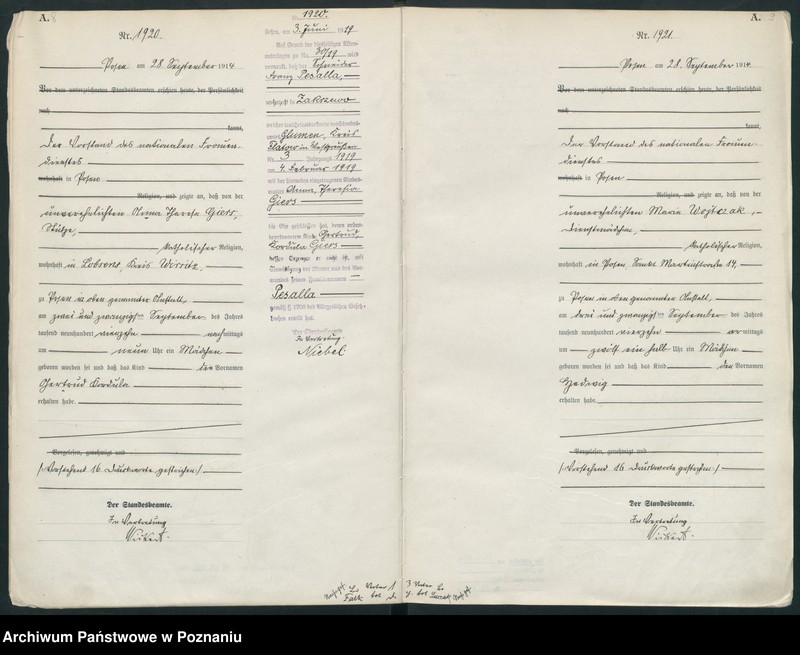 A.
Nr. 1920.
Posen am 28. September 1914
Vor dem unterzeichneten Standesbeamten erschien heute, der Persönlichkeit
nach
kannt,
Der Vorstand des nationalen Frauen-
dienstes
wohnhaft in Posen
Religion, und zeigte an, daß von der
unverehelichten Anna Theresia Giers,
Stütze,
katholischer Religion,
wohnhaft in Lobsens, Kreis Wirsitz,
zu Posen in oben genannter Anstalt,
am zwei und zwanzigsten September des Jahres
tausend neunhundert vierzehn nachmittags
um neun Uhr ein Mädchen
geboren worden sei und daß das Kind die Vornamen
Gertrud Kordula
erhalten habe.
Vorgelesen, genehmigt und
/: Vorstehend 16 Druckworte gestrichen :/
Der Standesbeamte.
In Vertretung
1920.
Posen, am 3. Juni 1919
Auf Grund der
30/19 wird
vermerkt, daß der Schneider
Franz Pesalla,
wohnhaft in Zakrzewo
Glumen, Kreis
Flatow in Westpreußen
Nr. 3 Jahrgangs 1919
am 4. Februar 1919
mit der
Anna Theresia
Giers
die Ehe geschlossen hat, deren
Kinde Gertrud,
Kordula Giers
Pesalla
gemäß § 1706 des Bürgerlichen Gesetz-
buches erteilt hat.
Der Standesbeamte
In Vertretung.
Niebel
A.
Nr. 1921.
Posen am 28. September 1914
Vor dem unterzeichneten Standesbeamten erschien heute, der Persönlichkeit
nach
kannt,
Der Vorstand des nationalen Frauen-
dienstes
wohnhaft in Posen
Religion, und zeigte an, daß von der
unverehelichten Maria Wojtczak,
Dienstmädchen,
katholischer Religion,
wohnhaft in Posen, Sankt Martinstraße 14,
zu Posen in oben genannter Anstalt,
am drei und zwanzigsten September des Jahres
tausend neunhundert vierzehn vormittags
um zwölf ein halb Uhr ein Mädchen
geboren worden sei und daß das Kind den Vornamen
Hedwig
erhalten habe.
Vorgelesen, genehmigt und
/: Vorstehend 16 Druckworte gestrichen :/
Der Standesbeamte.
In Vertretung
Archiwum Państwowe w Poznaniu